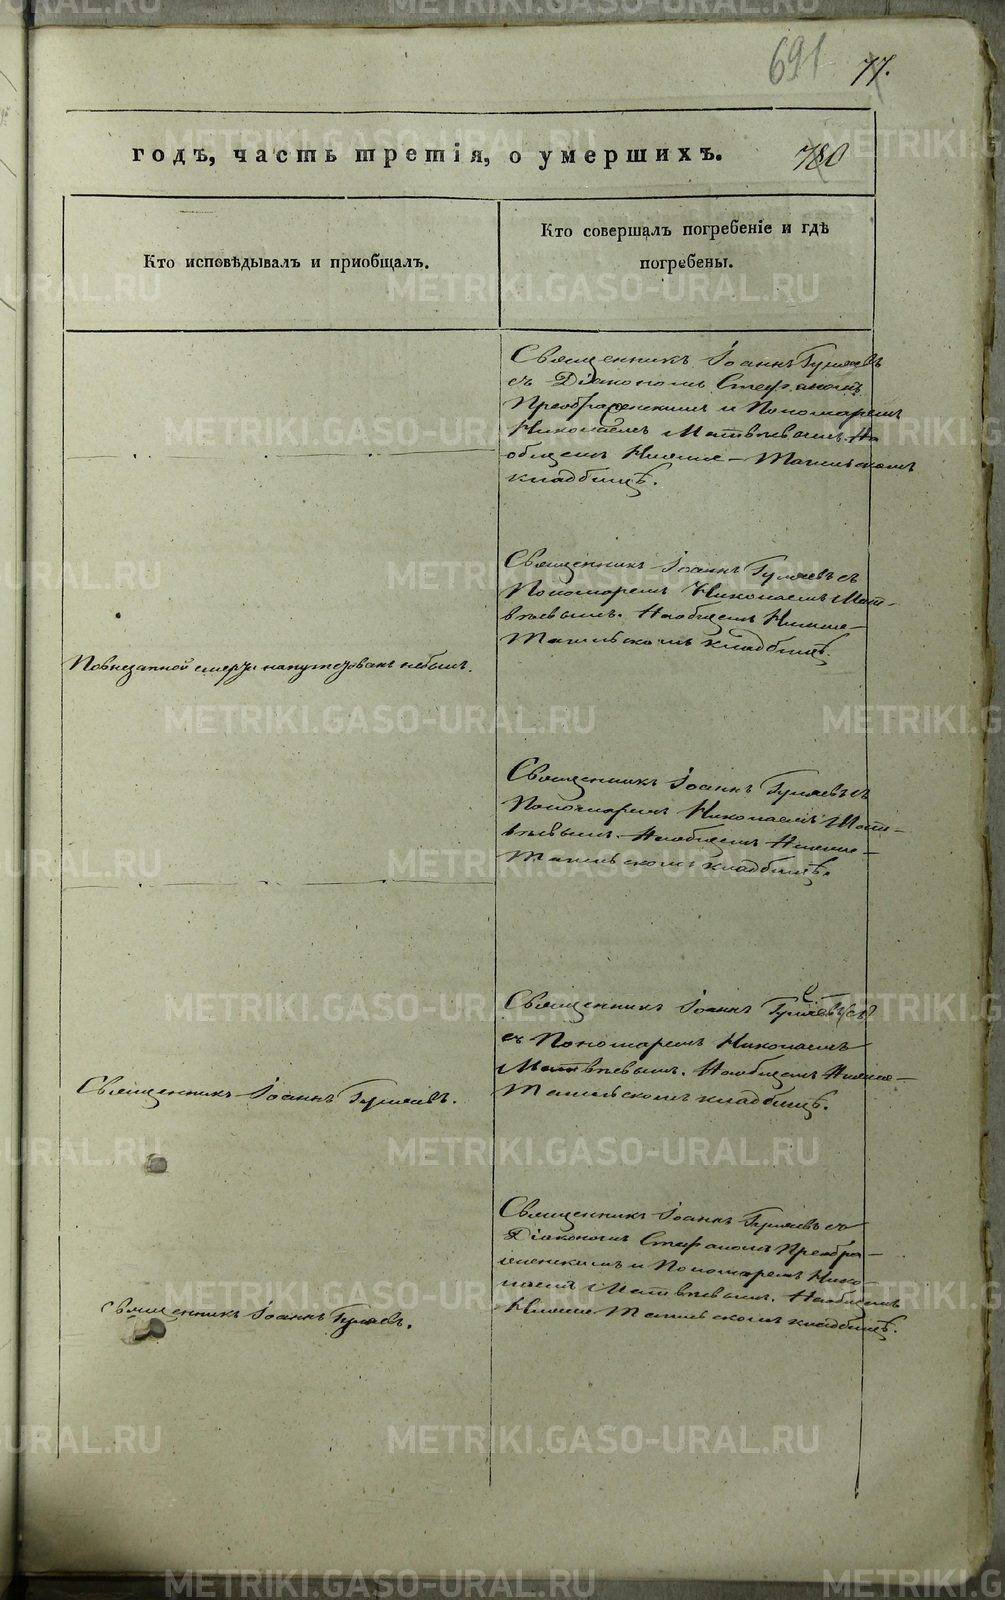 691 77.
годъ, часть третія, о умершихъ. 780
Кто исповѣдывалъ и приобщалъ.
Кто совершалъ погребеніе и гдѣ
погребены.
Священникъ Іоаннъ Гуляевъ
съ Діакономъ Стефаномъ
Преображенскимъ и Пономаремъ
Николаемъ Матвѣевымъ. На
общемъ Нижне-Тагильскомъ
кладбищѣ.
Священникъ Іоаннъ Гуляевъ съ
Пономаремъ Николаемъ Мат-
вѣевымъ. На общемъ Нижне-
Тагильскомъ кладбищѣ.
По внезапной смерти напутствованъ не былъ.
Священникъ Іоаннъ Гуляевъ съ
Пономаремъ Николаемъ Мат-
вѣевымъ. На общемъ Нижне-
Тагильскомъ кладбищѣ.
Священникъ Іоаннъ Гуляевъ
съ Пономаремъ Николаемъ
Матвѣевымъ. На общемъ Нижне-
Тагильскомъ кладбищѣ.
Священникъ Іоаннъ Гуляевъ.
Священникъ Іоаннъ Гуляевъ съ
Діакономъ Стефаномъ Преобра-
женскимъ и Пономаремъ Нико-
лаемъ Матвѣевымъ. На общемъ
Нижне-Тагильскомъ кладбищѣ.
Священникъ Іоаннъ Гуляевъ.
METRIKI.GASO-URAL.RU